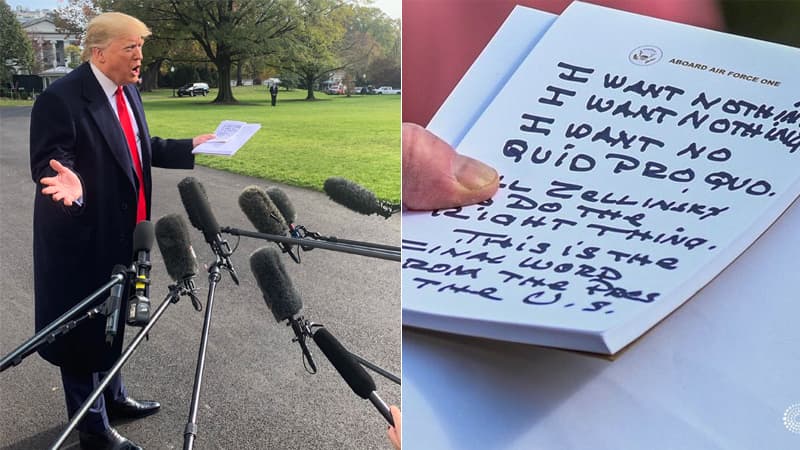 ABOARD AIR FORCE ONE
I WANT NOTHIN
I WANT NOTHING
I WANT NO
QUID PRO QUO.
LL ZELLINSKY
DO THE
RIGHT THING.
THIS IS THE
FINAL WORD
FROM THE PRES
THE U.S.